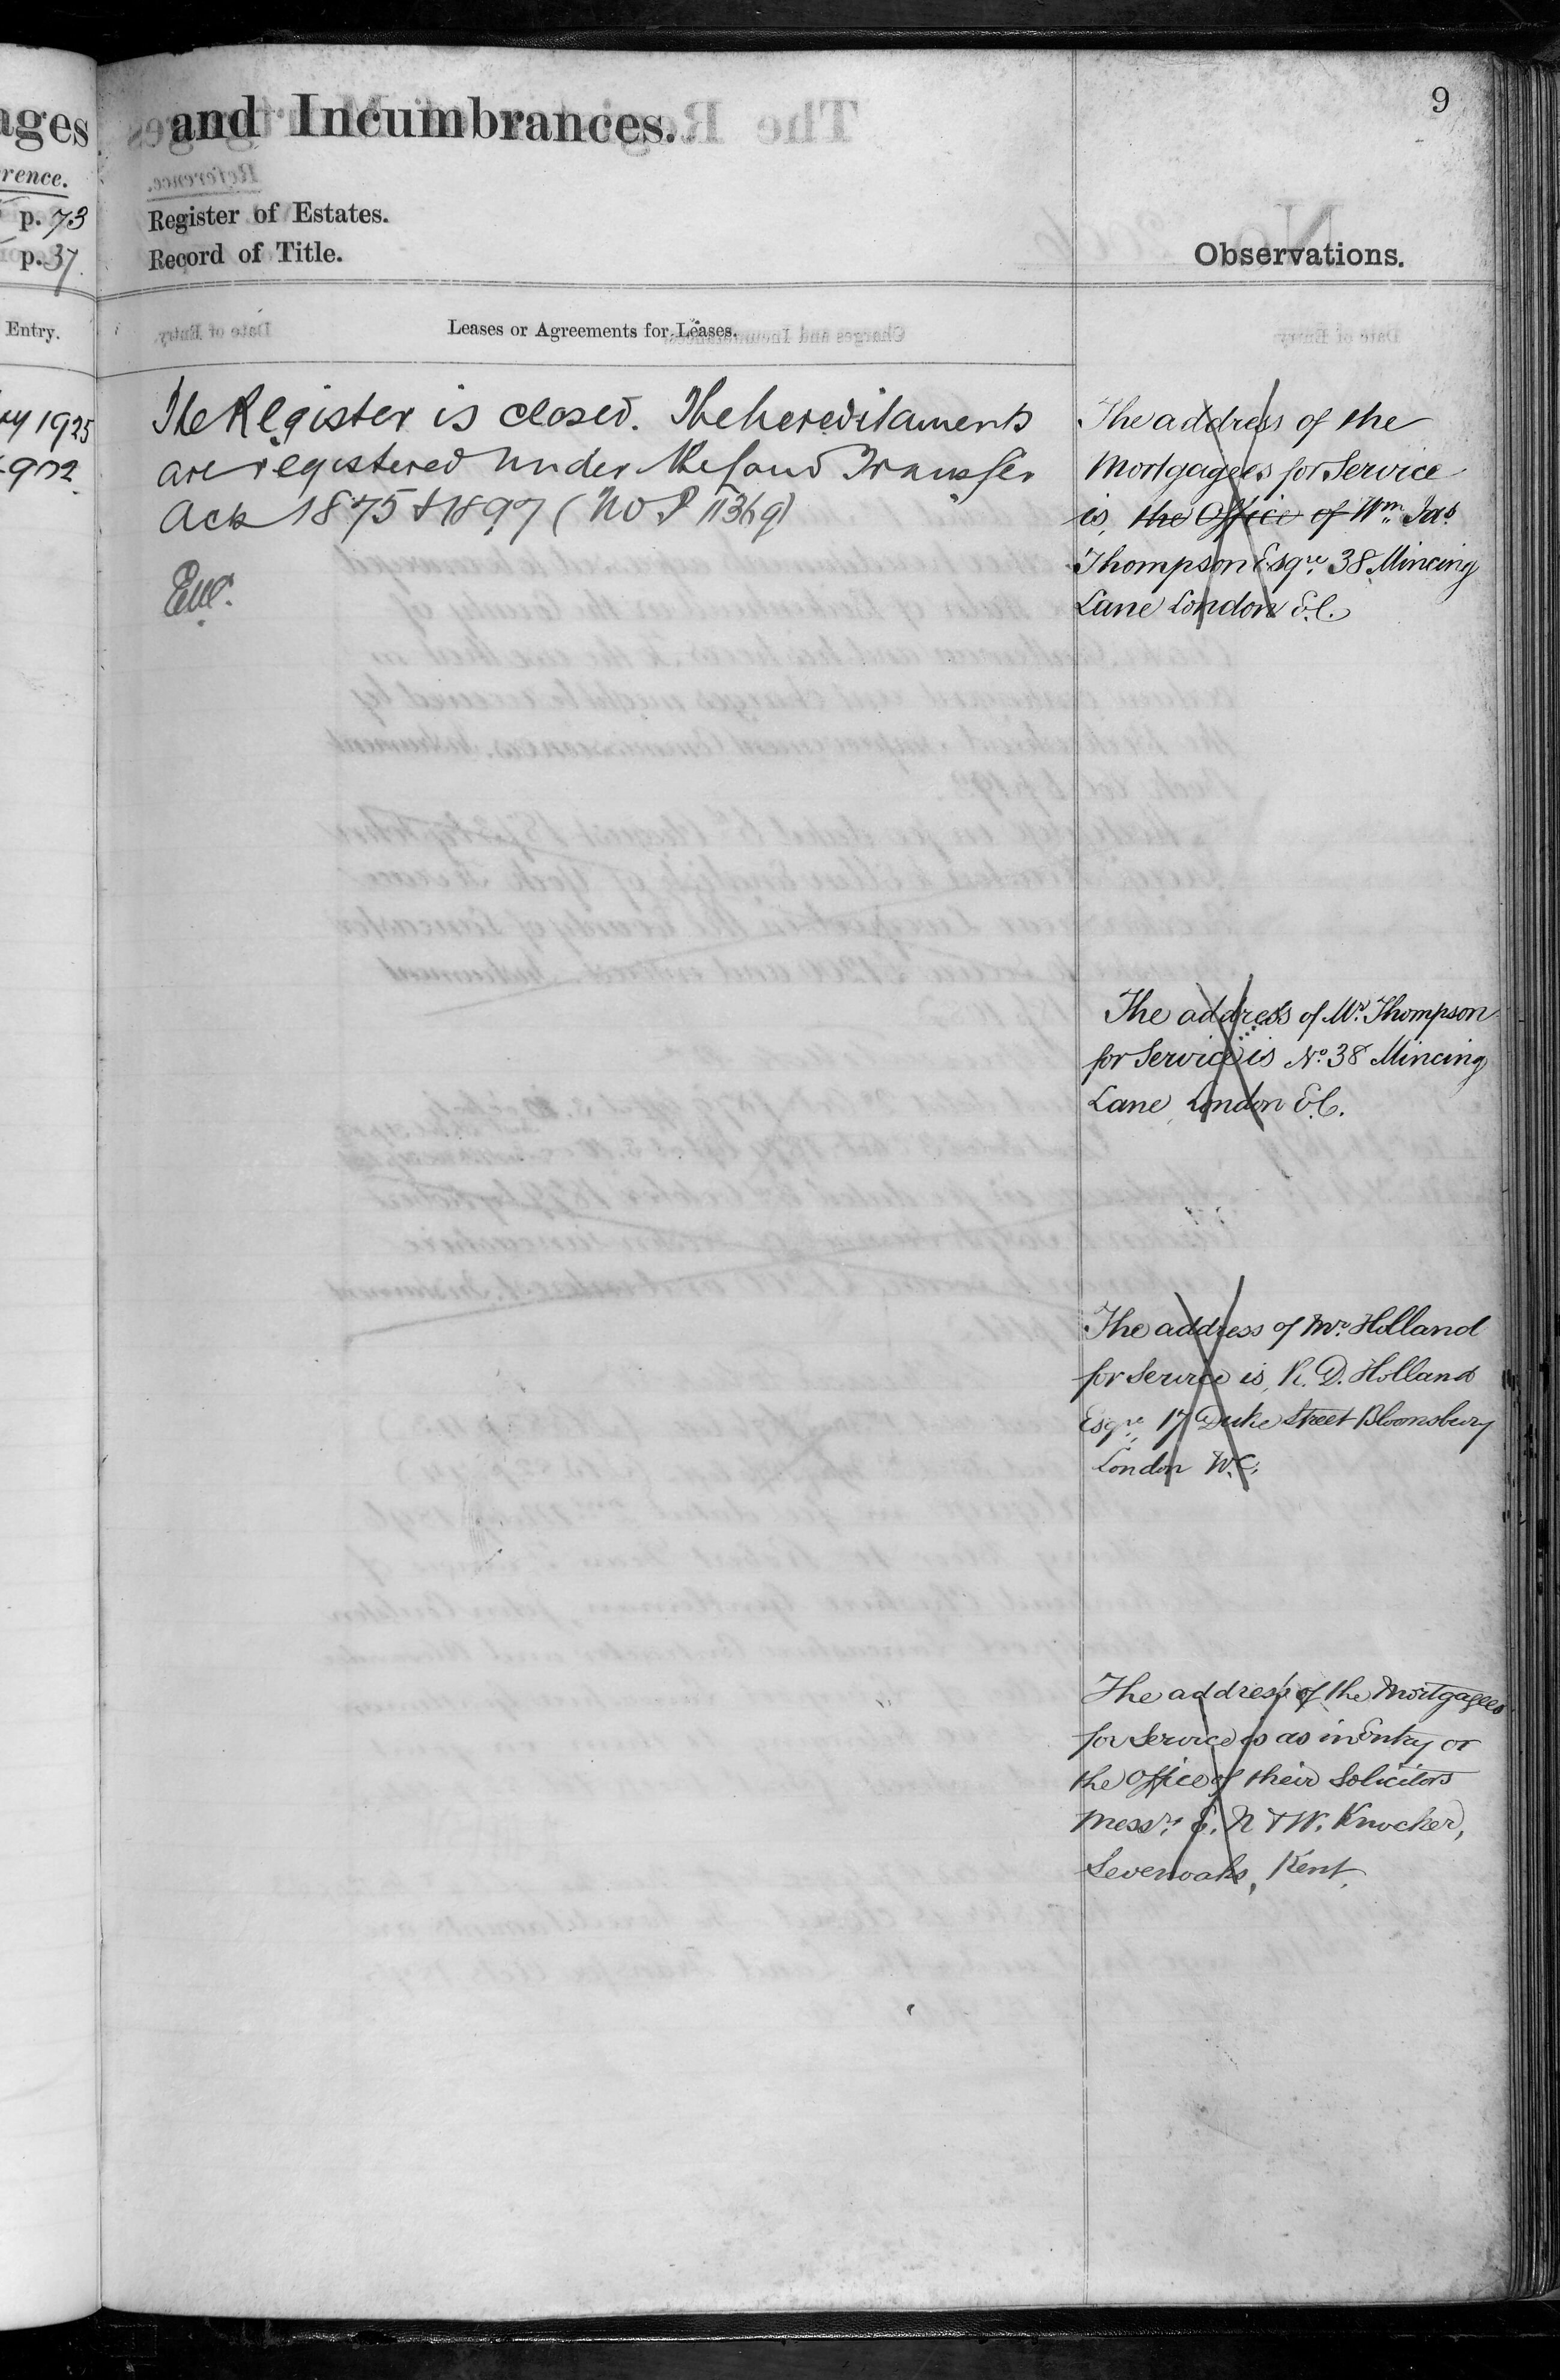 9
ages
and Incumbrances.
rence.
p. 73
Register of Estates.
p. 37
Record of Title.
Observations.
Entry.
Leases or Agreements for Leases.
1925
The Register is closed. The hereditaments
are registered under the Land Transfer
Acts 1875 & 1897 (No P 11369)
The address of the
Mortgagees for Service
is, the Office of Wm. Jas.
Thompson Esqre. 38 Mincing
Lane London E.C.
The address of Mr. Thompson
for Service is No. 38 Mincing
Lane, London E.C.
The address of Mr. Holland
for Service is, R. D. Holland
Esqre., 17 Duke Street Bloomsbury
London W.C.
The address of the Mortgagees
for Service is as in Entry or
the Office of their Solicitors
Messrs. E. N & W. Knocker,
Sevenoaks, Kent.